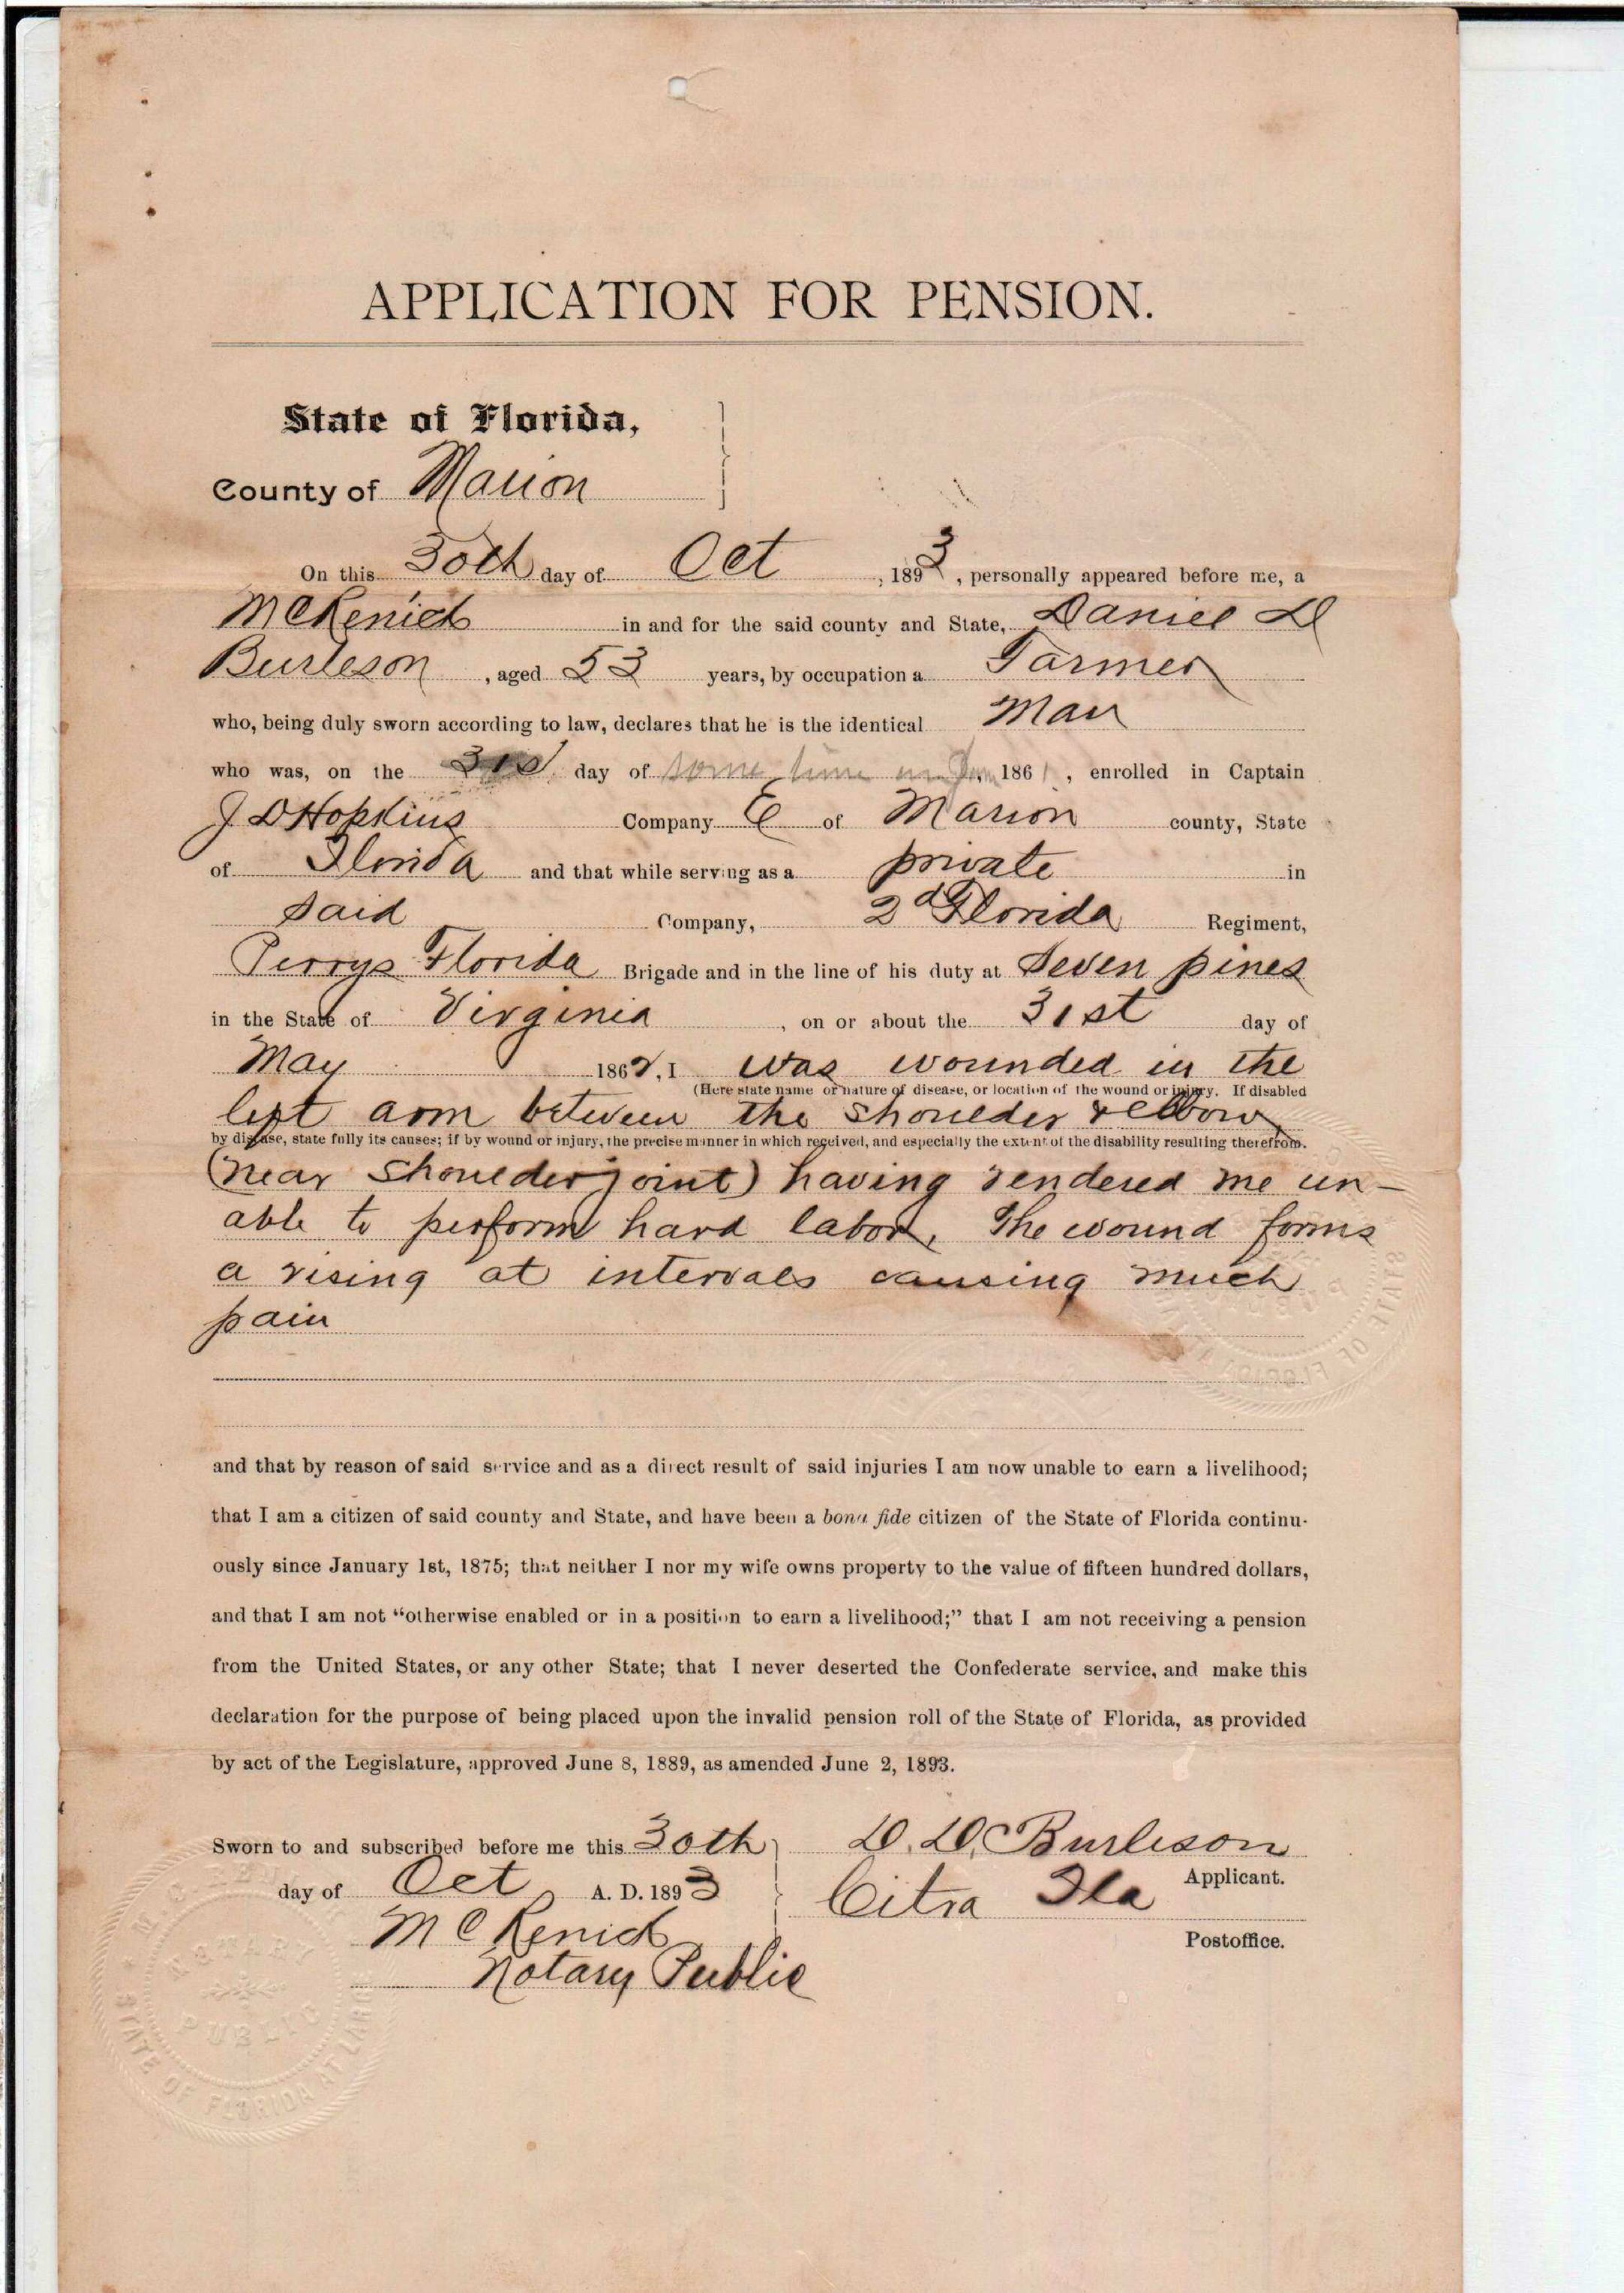 APPLICATION FOR PENSION.
State of Florida,
County of Marion
On this 30th day of Oct, 1893, personally appeared before me, a
M C Renich in and for the said county and State, Daniel D
Burleson, aged 53 years, by occupation a Farmer
who, being duly sworn according to law, declares that he is the identical Man
who was, on the 31st day of some time in 1861, enrolled in Captain
J D Hopkins Company E of Marion county, State
of Florida and that while serving as a private in
said Company, 2d Florida Regiment,
Perrys Florida Brigade and in the line of his duty at Seven pines
in the State of Virginia, on or about the 31st day of
May 1862, I was wounded in the
(Here state name or nature of disease, or location of the wound or injury. If disabled
left arm between the shoulder & elbow
by disease, state fully its causes; if by wound or injury, the precise manner in which received, and especially the extent of the disability resulting therefrom.
(near shoulder joint) having rendered me un-
able to perform hard labor. The wound forms
a rising at intervals causing much
pain
and that by reason of said service and as a direct result of said injuries I am now unable to earn a livelihood;
that I am a citizen of said county and State, and have been a bona fide citizen of the State of Florida continu-
ously since January 1st, 1875; that neither I nor my wife owns property to the value of fifteen hundred dollars,
and that I am not “otherwise enabled or in a position to earn a livelihood;” that I am not receiving a pension
from the United States, or any other State; that I never deserted the Confederate service, and make this
declaration for the purpose of being placed upon the invalid pension roll of the State of Florida, as provided
by act of the Legislature, approved June 8, 1889, as amended June 2, 1893.
Sworn to and subscribed before me this 30th
day of Oct A. D. 1893
M C Renich
Notary Public
D. D. Burleson
Applicant.
Citra Fla
Postoffice.
NOTARY
PUBLIC
STATE OF FLORIDA AT LARGE